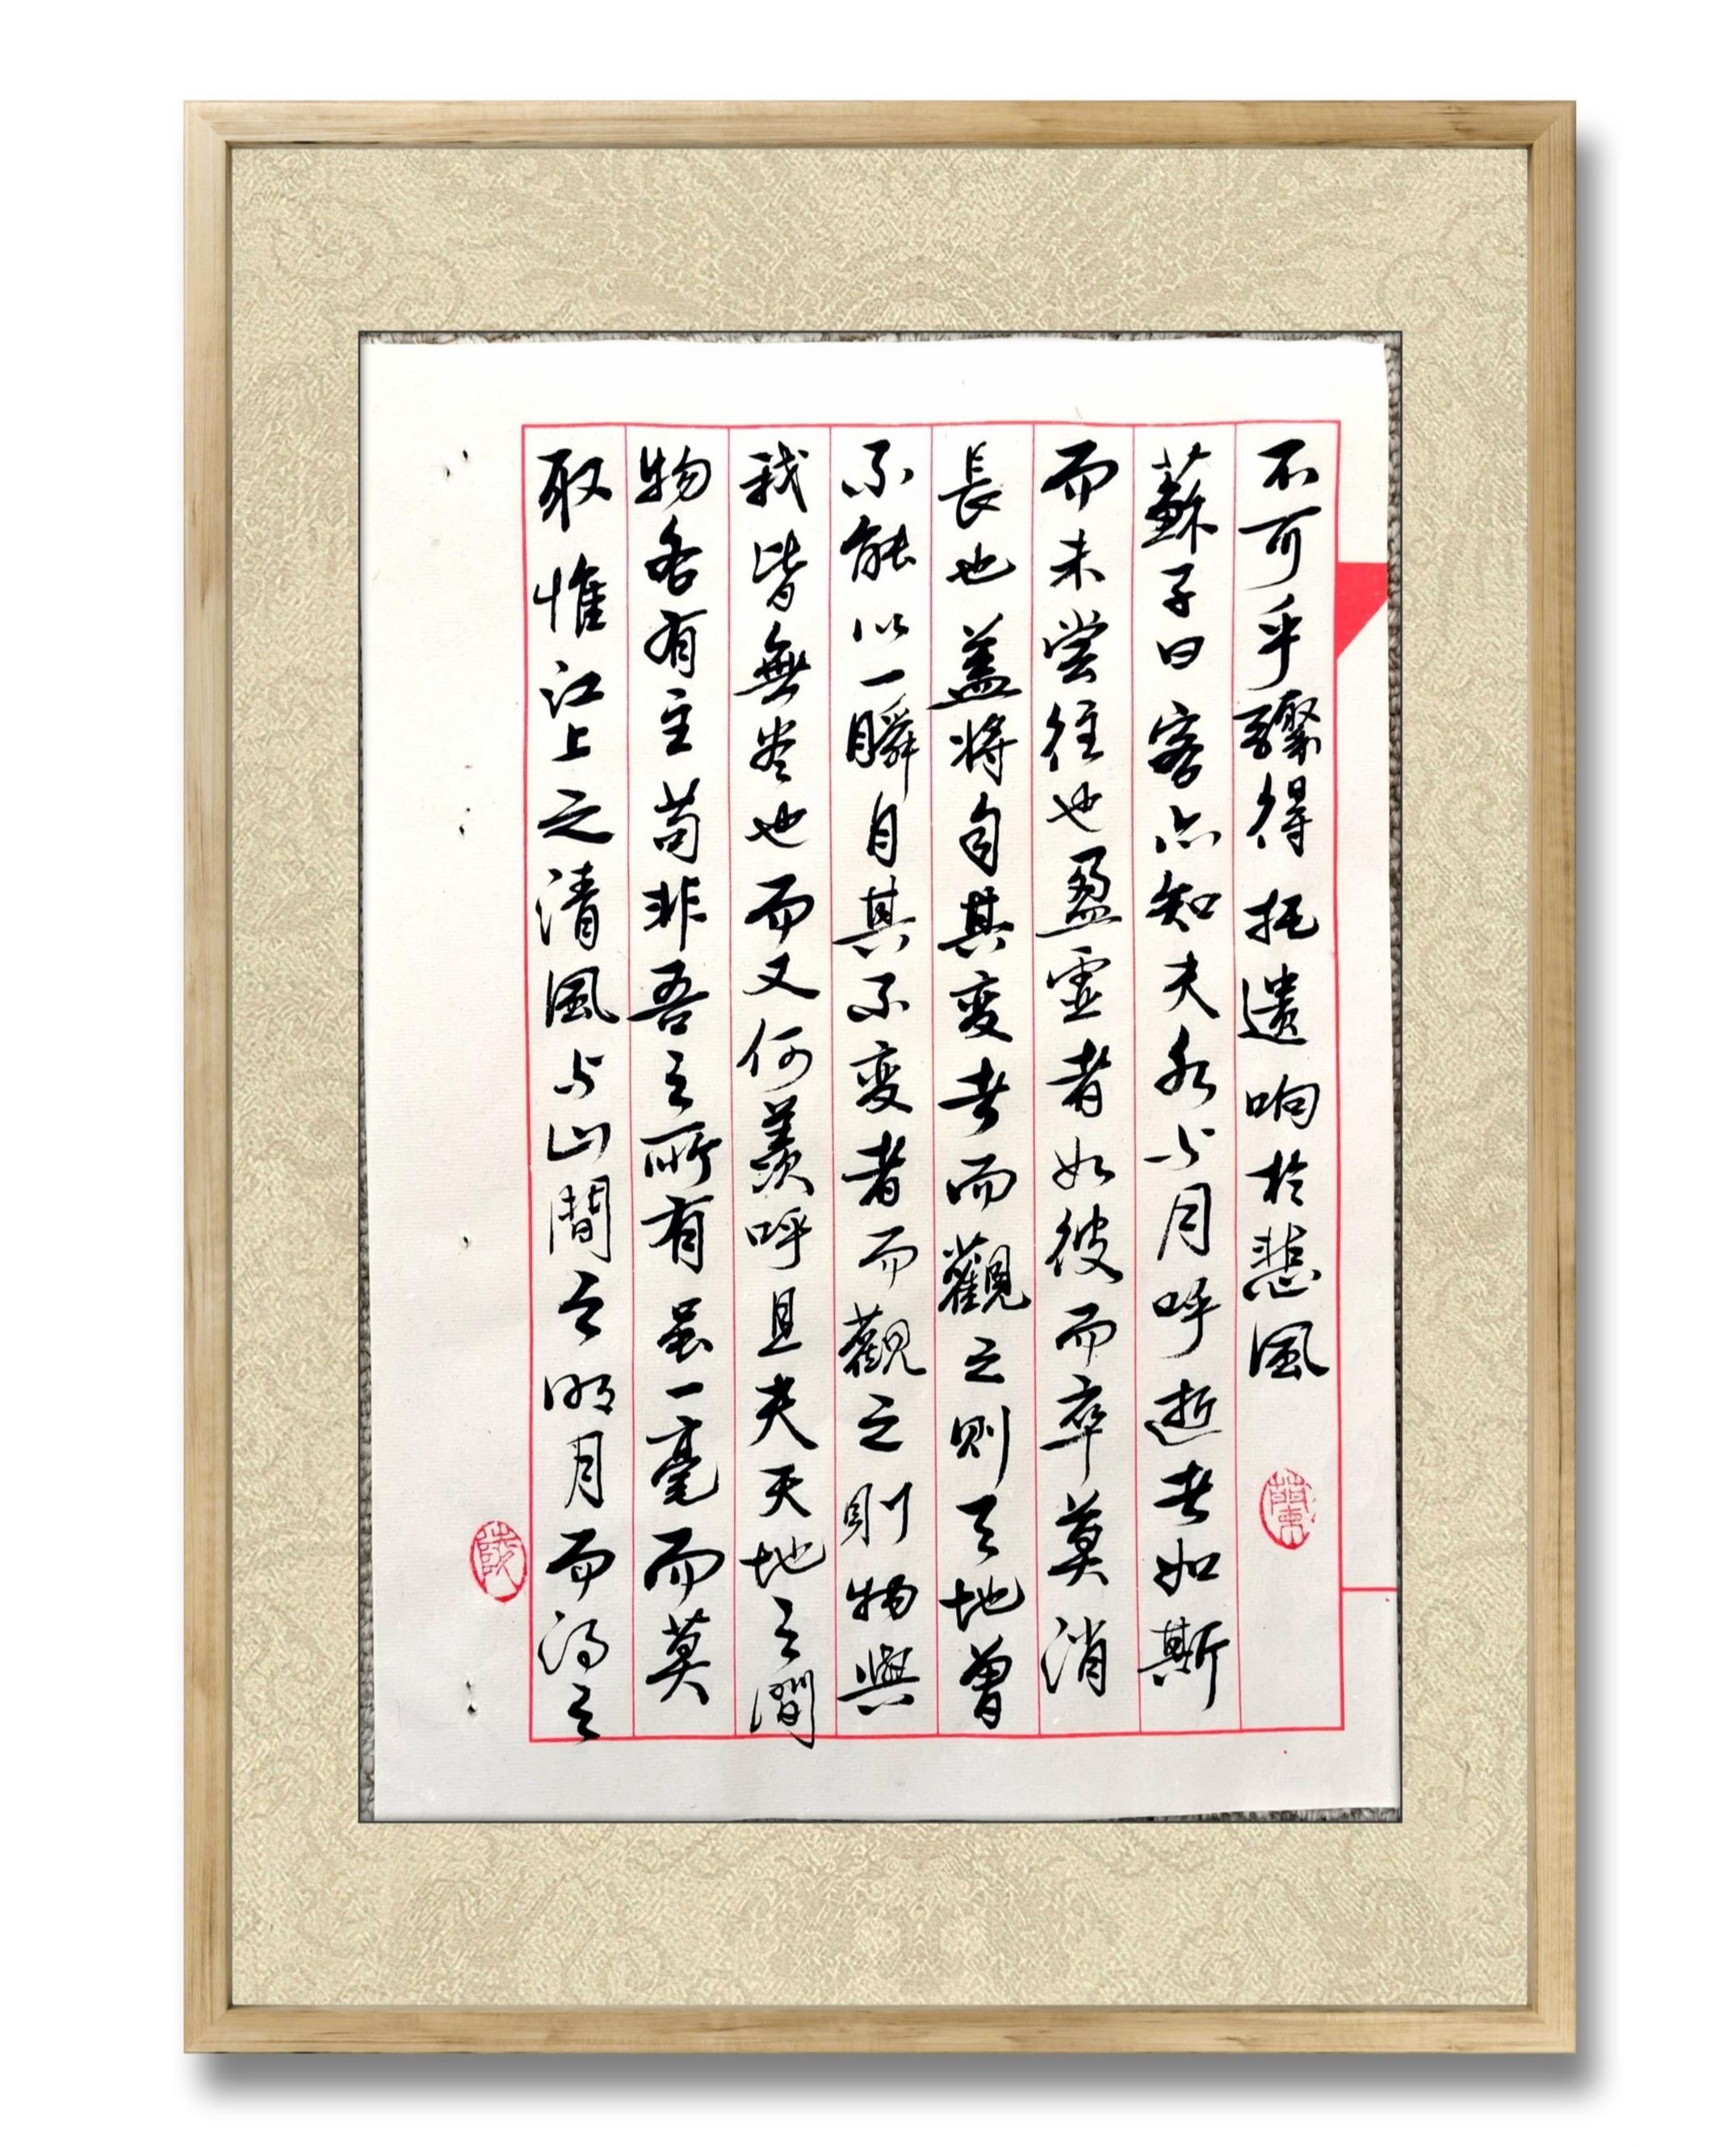 不可乎驟得托遗响於悲風
蘇子曰客亦知夫水与月呼逝者如斯
而未尝往也盈虚者如彼而卒莫消
長也盖将自其变者而觀之则天地曾
不能以一瞬自其不变者而觀之则物與
我皆無尽也而又何羡呼且夫天地之間
物各有主苟非吾之所有虽一毫而莫
取惟江上之清風与山間之明月而得之